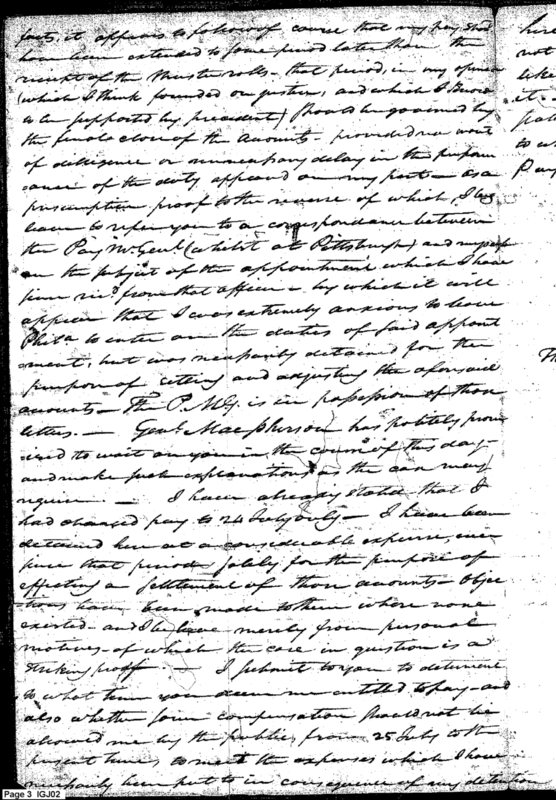 facts, it appears to follow of course that my pay shd
have been extended to some period later than the
receipt of the Muster rolls - that period, in my opinion
(which I think founded on justice, and which I know
to be supported by president) should be governed by
the final close of the Accounts - provided no want
of dilligence or unnecessary delay in the perform
ance of the duty appeared on my part - as a
presumptive proof to the reverse of which, I beg
leave to refer you to a correspondence between
the Pay Mr Genl (whilst at Pittsburgh) and myself
on the subject of the appointment which I have
since recd from that officer - by which it will
appear that I was extremely anxious to leave
Phila to enter on the duties of said appoint
ment, but was necessarily detained for the
purpose of settling and adjusting the aforesaid
accounts - The P.M.G. is in possession of those
letters. - Genl Macpherson has politely prom
ised to wait on you in the course of this day -
and make such explanations as the case may
require - I have already stated that I
had charged pay to 24 July only - I have been
detained here at a considerable expense, ever
since that period solely for the purpose of
effecting a settlement of those accounts - Objec
tions have been made to them where none
existed - and I believe merely from personal
motives - of which the case in question is a
striking proof. - I submit to you to determine
to what time you deem me entitled to pay - and
also whether some compensation should not be
allowed me by the public, from 25 July to the
present time, to meet the expenses which I have
necessarily been put to in consequence of my detention
here
not
like
it
to w
Pay
Page 3 IGJ02